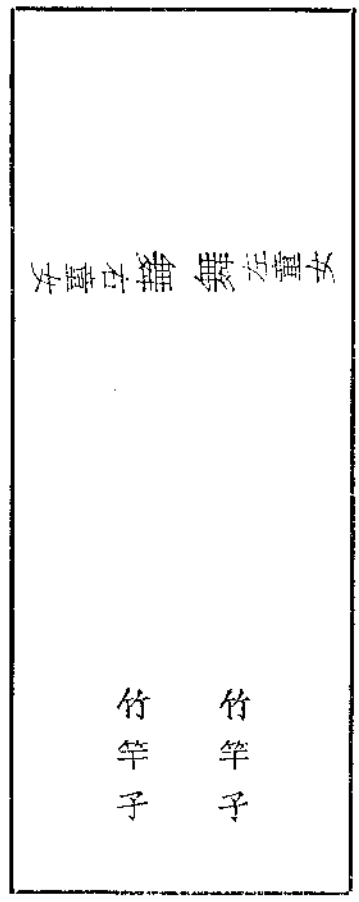 舞左童女
舞右童女
竹竿子
竹竿子